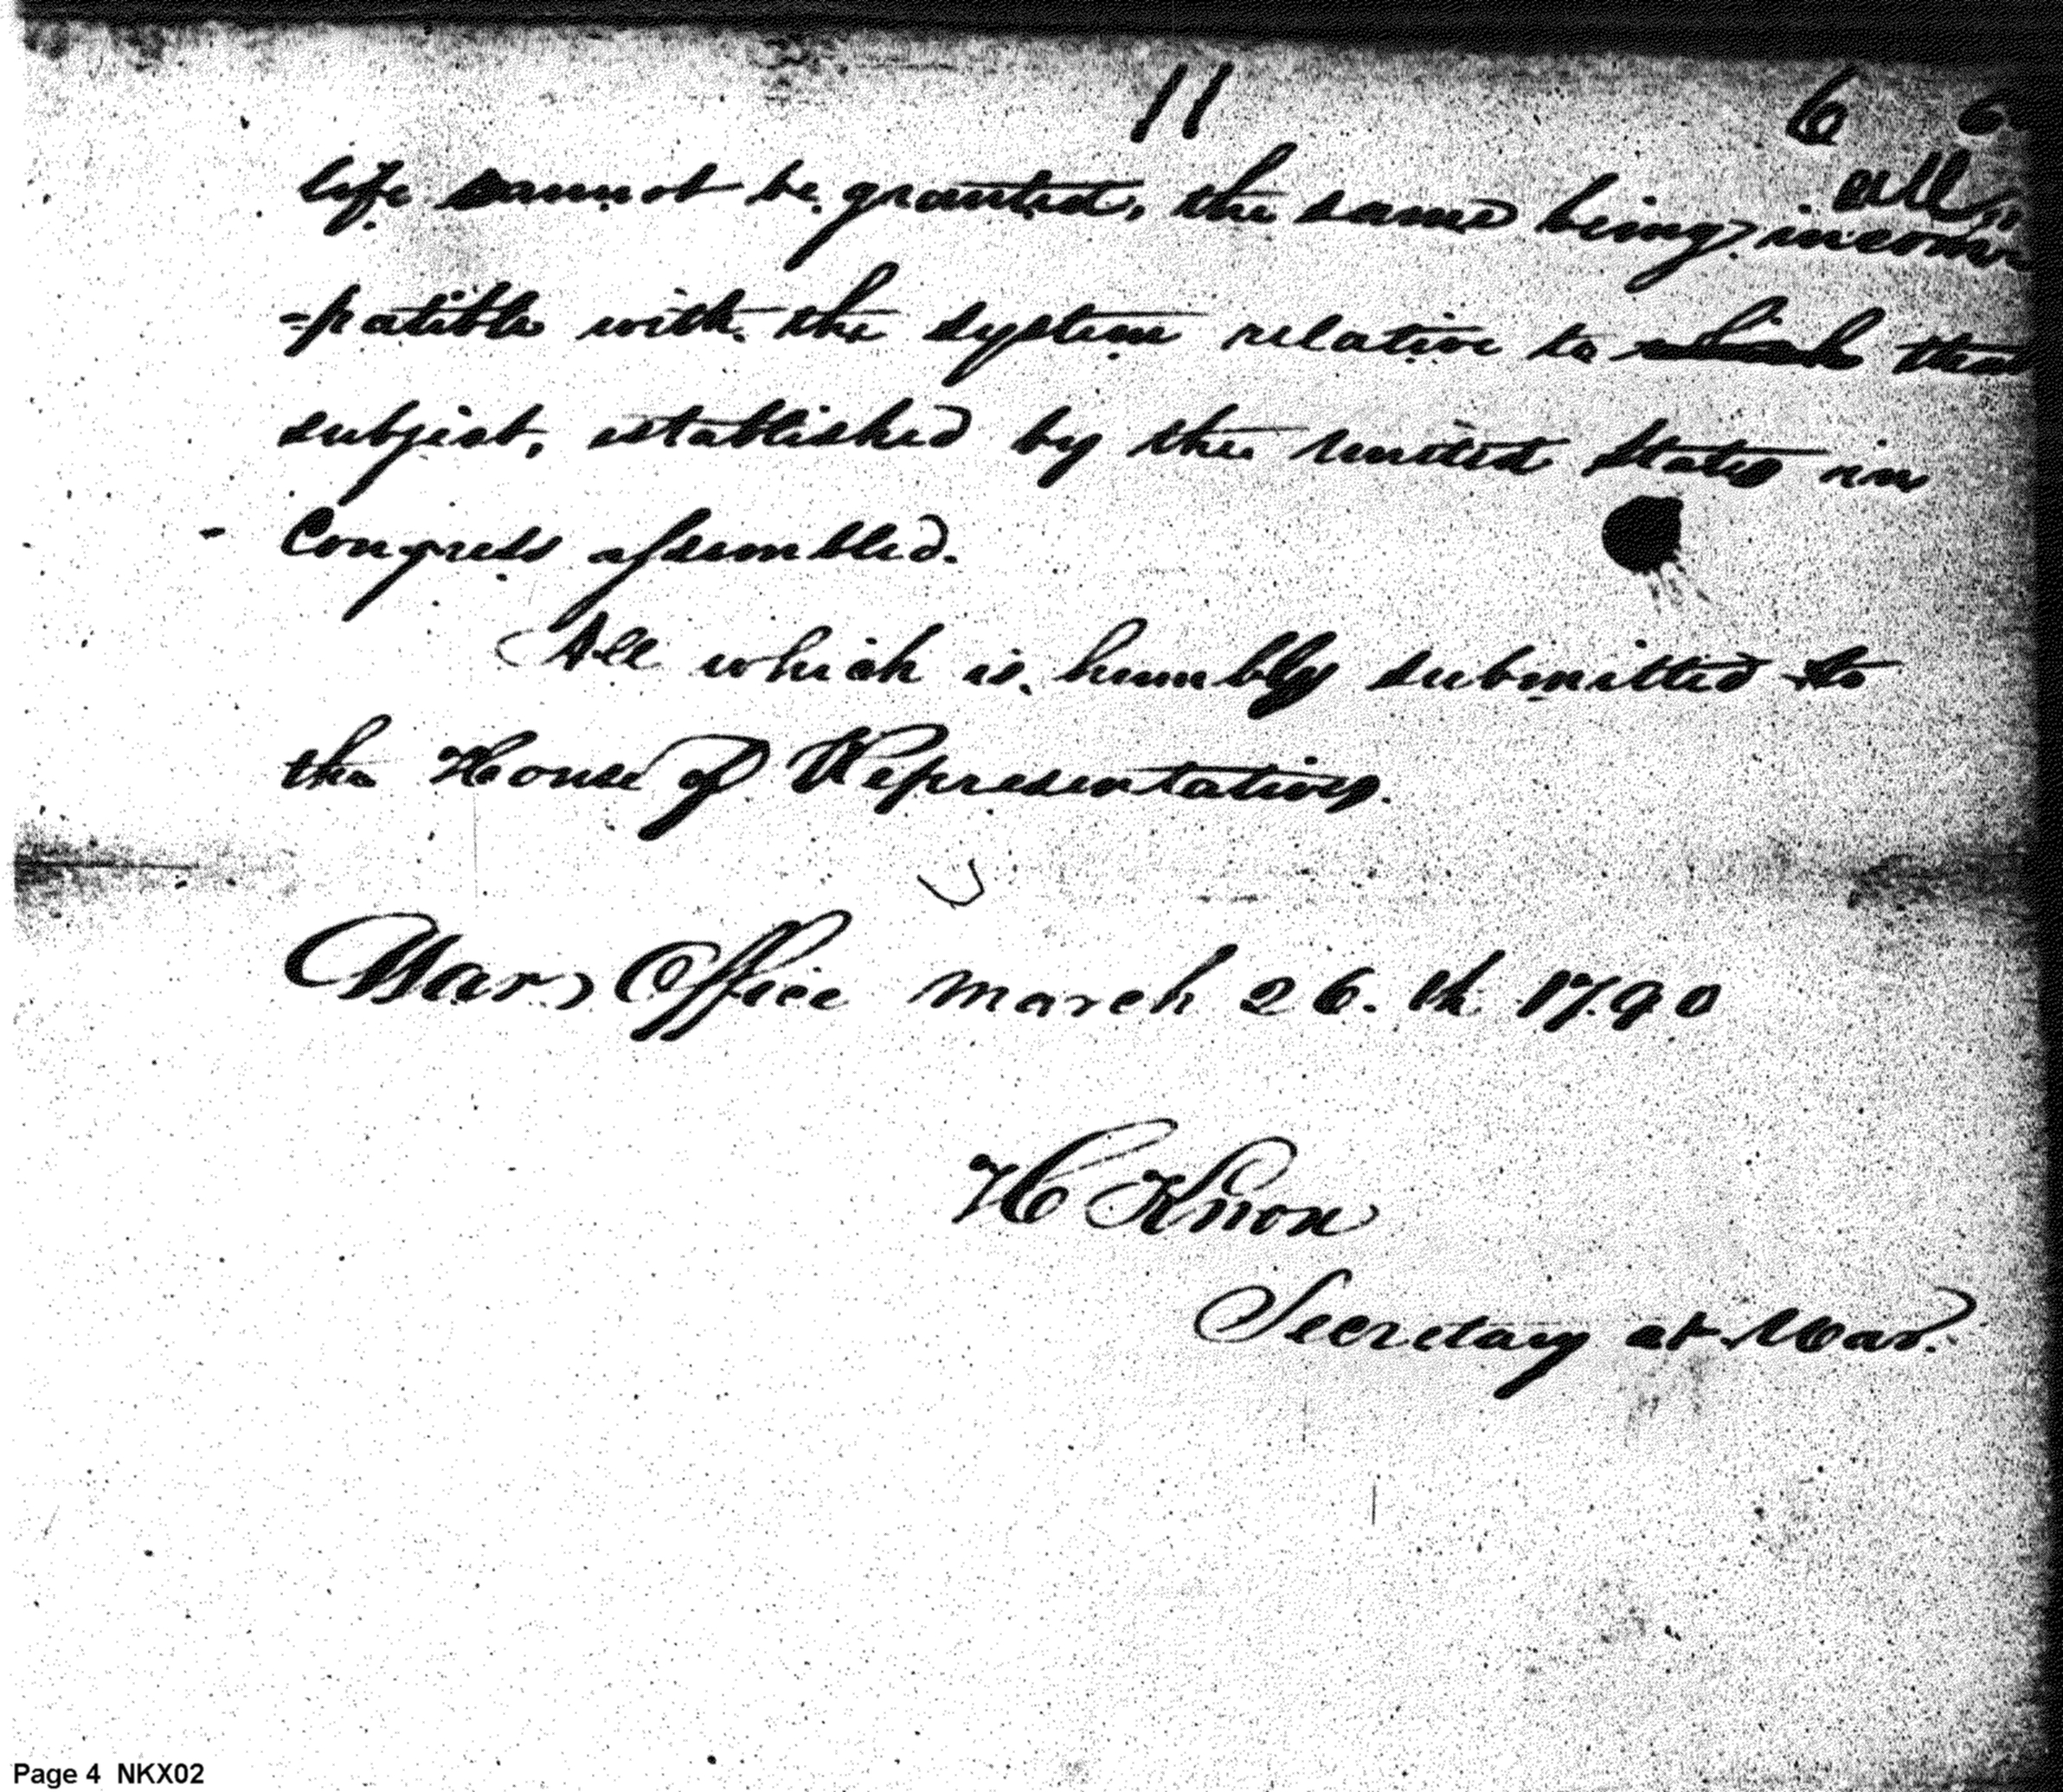 11 6 6
all
life cannot be granted, the same being incom
=patible with the system relative to which that
subject, established by the United States in
Congress assembled.
All which is humbly submitted to
the House of Representatives.
War Office March 26.th 1790
H Knox
Secretary at War.
Page 4 NKX02